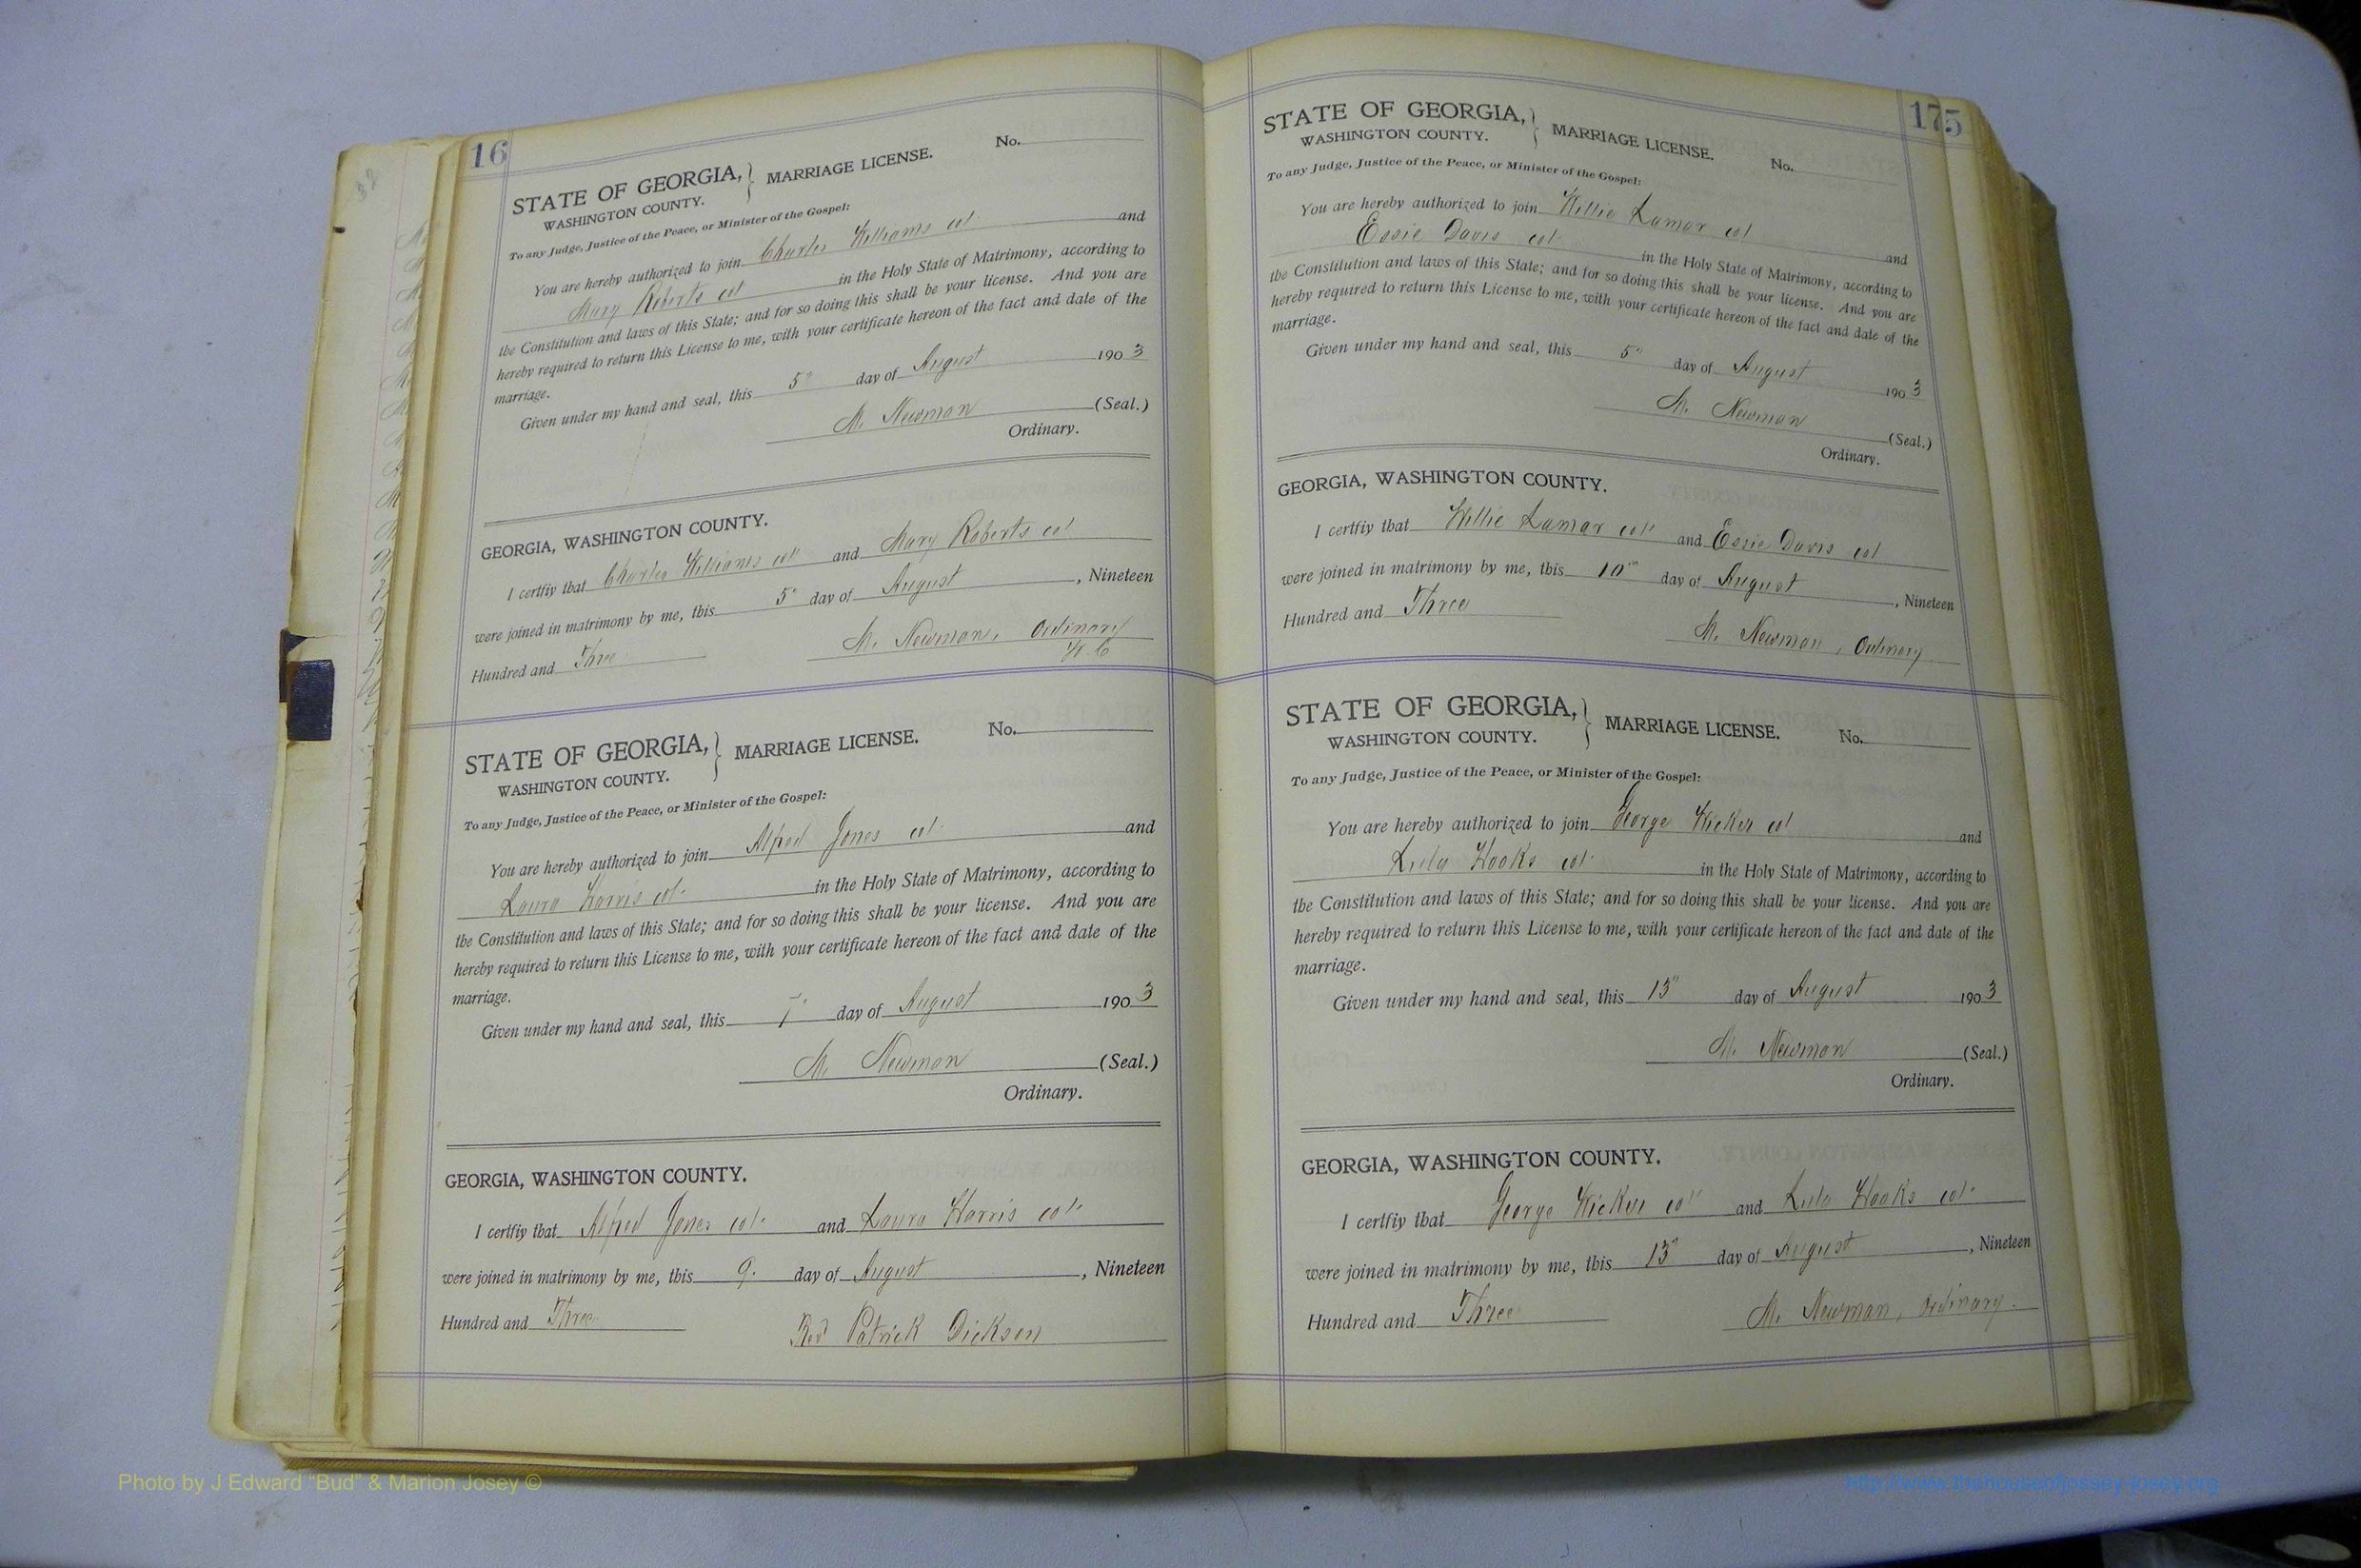 16
STATE OF GEORGIA, } MARRIAGE LICENSE. No.
WASHINGTON COUNTY.
To any Judge, Justice of the Peace, or Minister of the Gospel:
You are hereby authorized to join Charles Williams col and
Mary Roberts col in the Holy State of Matrimony, according to
the Constitution and laws of this State; and for so doing this shall be your license. And you are
hereby required to return this License to me, with your certificate hereon of the fact and date of the
marriage.
Given under my hand and seal, this 5" day of August 1903
M. Newman (Seal.)
Ordinary.
GEORGIA, WASHINGTON COUNTY.
I certfiy that Charles Williams col and Mary Roberts col
were joined in matrimony by me, this 5" day of August, Nineteen
Hundred and Three
M. Newman, Ordinary
W. C
STATE OF GEORGIA, } MARRIAGE LICENSE. No.
WASHINGTON COUNTY.
To any Judge, Justice of the Peace, or Minister of the Gospel:
You are hereby authorized to join Alfred Jones col. and
Laura Harris col. in the Holy State of Matrimony, according to
the Constitution and laws of this State; and for so doing this shall be your license. And you are
hereby required to return this License to me, with your certificate hereon of the fact and date of the
marriage.
Given under my hand and seal, this 7" day of August 1903
M. Newman (Seal.)
Ordinary.
GEORGIA, WASHINGTON COUNTY.
I certfiy that Alfred Jones col. and Laura Harris col.
were joined in matrimony by me, this 9. day of August, Nineteen
Hundred and Three
Rev Patrick Dickson
175
STATE OF GEORGIA, } MARRIAGE LICENSE. No.
WASHINGTON COUNTY.
To any Judge, Justice of the Peace, or Minister of the Gospel:
You are hereby authorized to join Willie Lamar col and
Essie Davis col in the Holy State of Matrimony, according to
the Constitution and laws of this State; and for so doing this shall be your license. And you are
hereby required to return this License to me, with your certificate hereon of the fact and date of the
marriage.
Given under my hand and seal, this 5" day of August 1903
M. Newman (Seal.)
Ordinary.
GEORGIA, WASHINGTON COUNTY.
I certfiy that Willie Lamar col and Essie Davis col
were joined in matrimony by me, this 10" day of August, Nineteen
Hundred and Three
M. Newman, Ordinary
STATE OF GEORGIA, } MARRIAGE LICENSE. No.
WASHINGTON COUNTY.
To any Judge, Justice of the Peace, or Minister of the Gospel:
You are hereby authorized to join George Wicker col and
Lula Hooks col. in the Holy State of Matrimony, according to
the Constitution and laws of this State; and for so doing this shall be your license. And you are
hereby required to return this License to me, with your certificate hereon of the fact and date of the
marriage.
Given under my hand and seal, this 13" day of August 1903
M. Newman (Seal.)
Ordinary.
GEORGIA, WASHINGTON COUNTY.
I certfiy that George Wicker col and Lula Hooks col.
were joined in matrimony by me, this 13" day of August, Nineteen
Hundred and Three
M. Newman, Ordinary.
Photo by J Edward "Bud" & Marion Josey ©
http://www.thehouseofjossey-josey.org